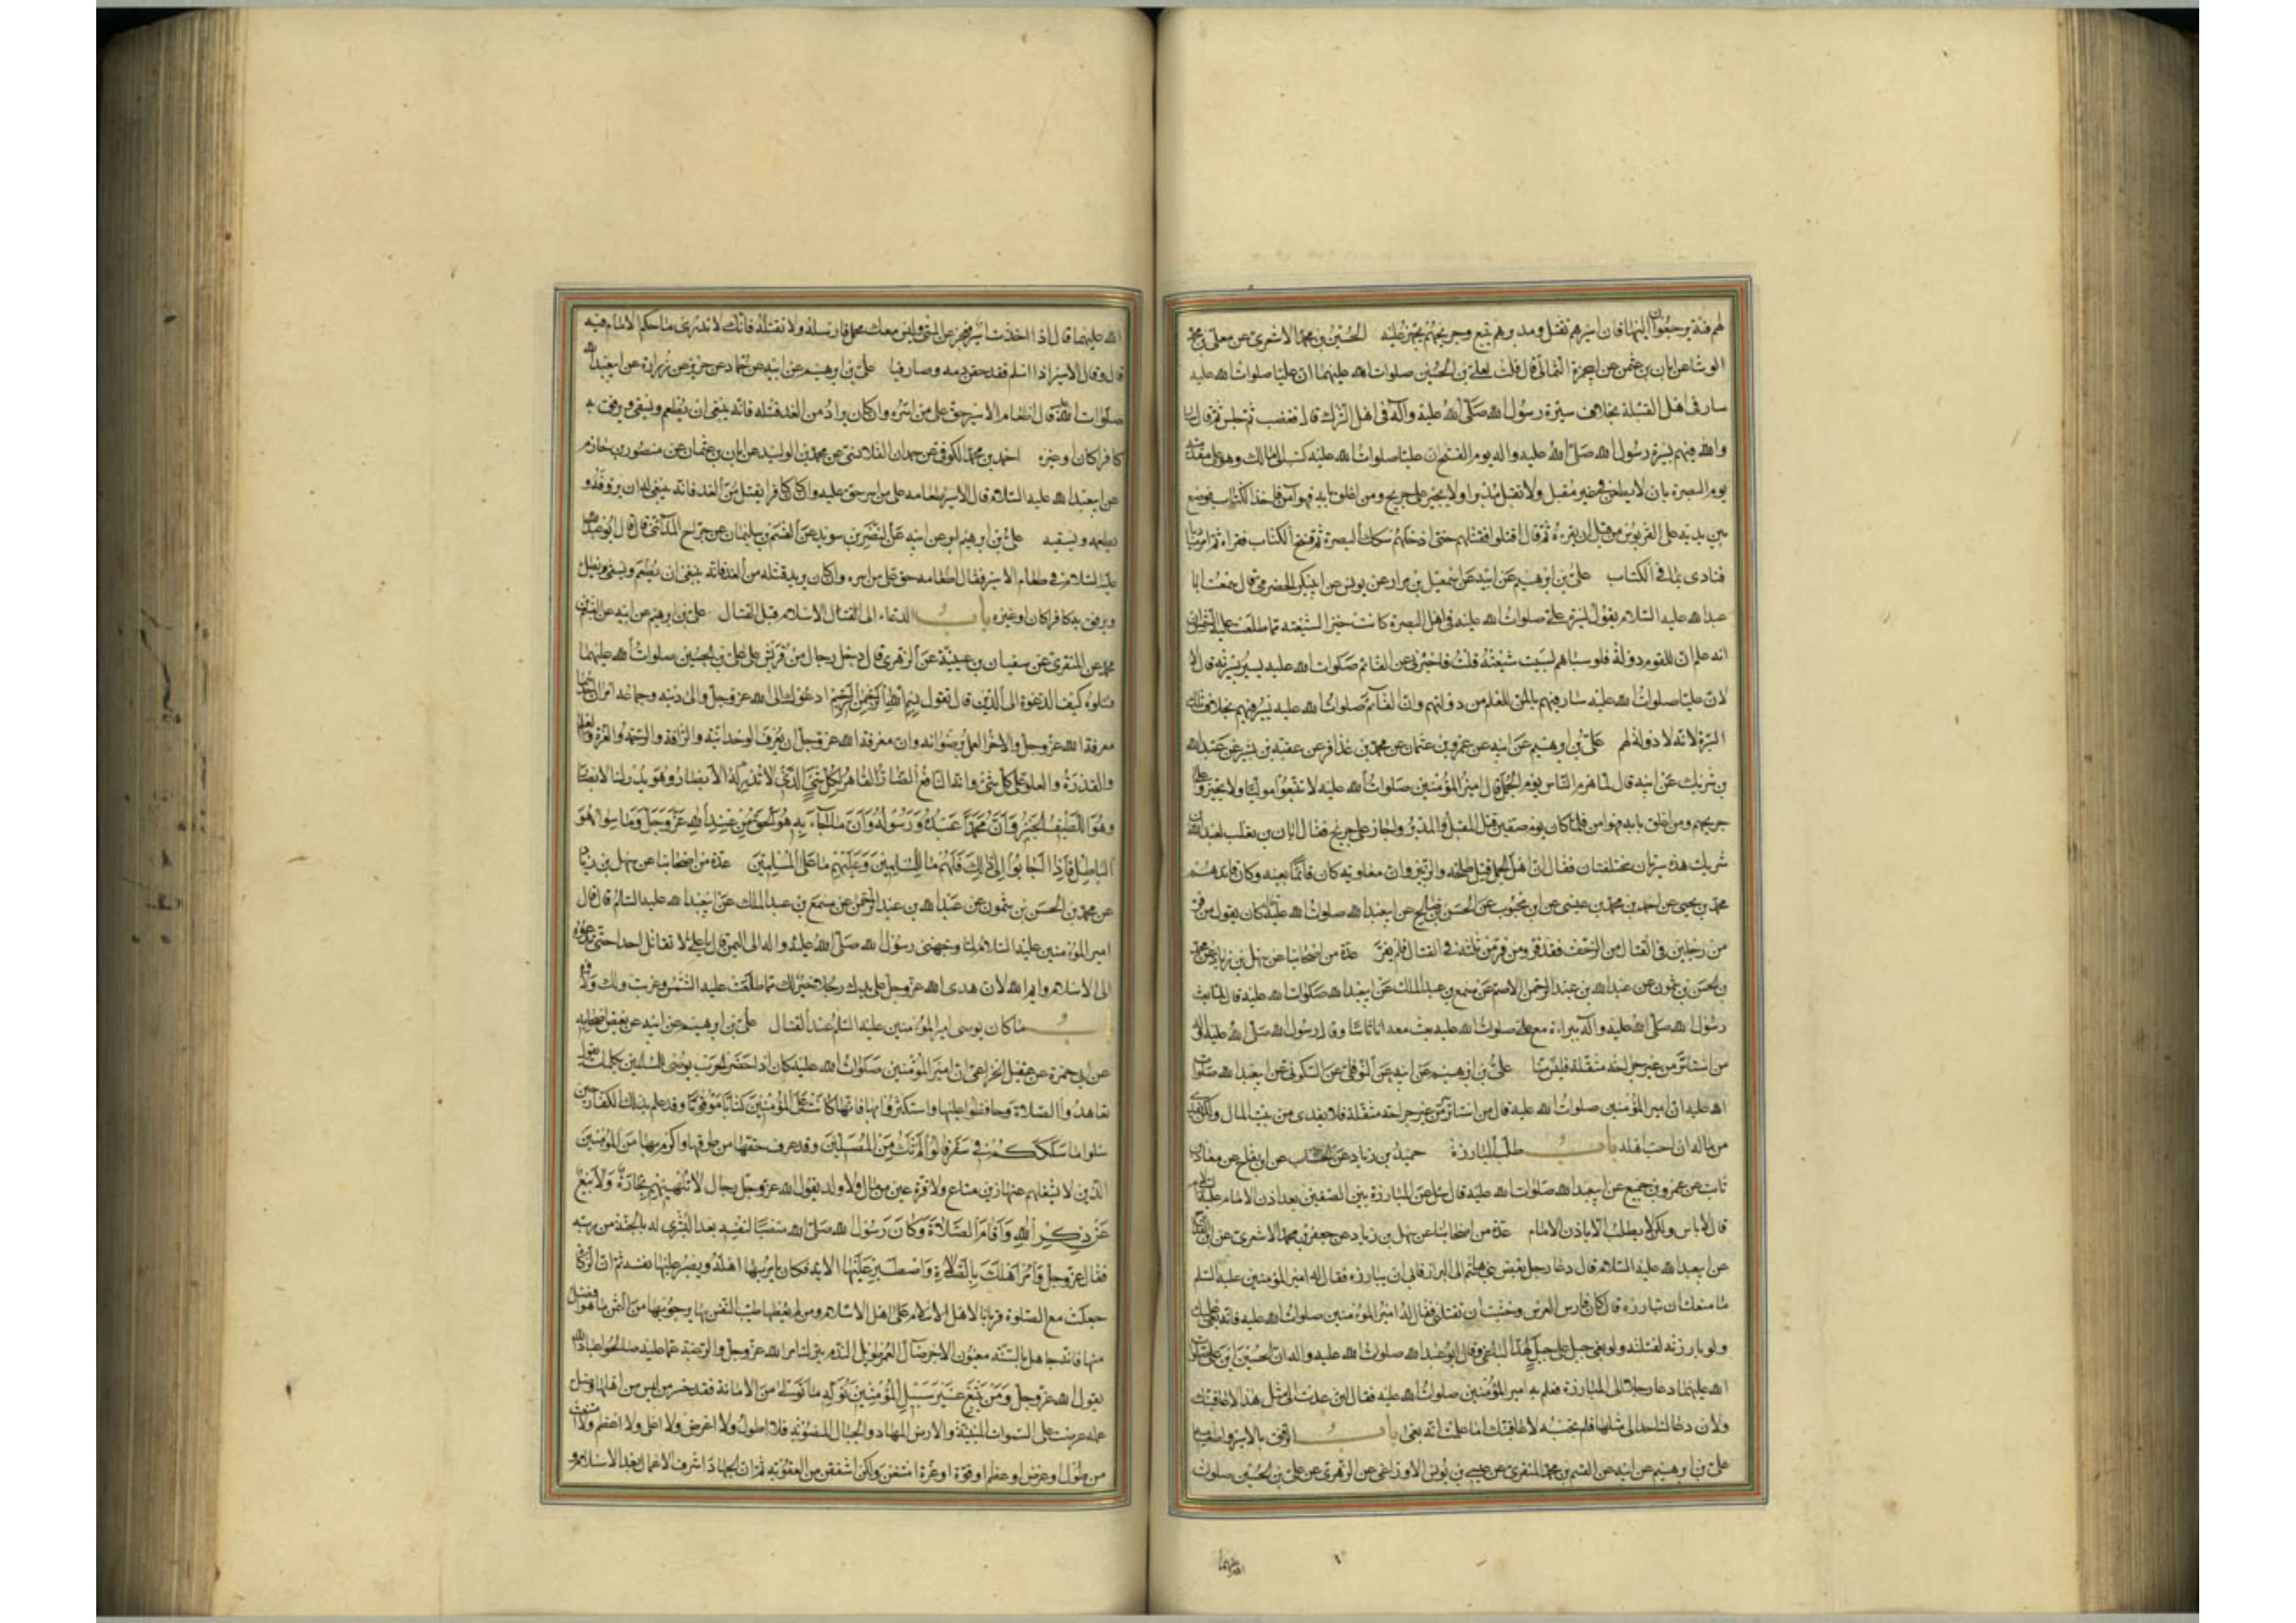 لهم فئة يرجعون اليها فان اسيرهم يقتل ومدبرهم يتبع وجريحهم يجهز عليه الحسين بن محمد الاشعري عن معلى بن محمد
الوشا عن ابان بن عثمن عن ابي حمزة الثمالي قال قلت لعلي بن الحسين صلوات الله عليهما ان عليا صلوات الله عليه
سار في اهل القبلة بخلاف سيرة رسول الله صلى الله عليه وآله في اهل الشرك قال فغضب ثم جلس ثم قال سار
والله فيهم بسيرة رسول الله صلى الله عليه واله يوم الفتح ان عليا صلوات الله عليه كتب الى مالك وهو على مقدمته
يوم البصرة بان لا يطعن في غير مقبل ولا يقتل مدبرا ولا يجيز على جريح ومن اغلق بابه فهو آمن فاخذ الكتاب فوضع
بين يديه على القربوس من قبل ان يقرءه ثم قال اقتلوا فقتلهم حتى ادخلهم سكك البصرة ثم فتح الكتاب فقراه ثم امر مناديا
فنادى بما في الكتاب علي بن ابرهيم عن ابيه عن اسمعيل بن مرار عن يونس عن ابي بكر الحضرمي قال سمعت ابا
عبد الله عليه السلام يقول لسيرة علي صلوات الله عليه في اهل البصرة كانت خيرا لشيعته مما طلعت عليه الشمس
انه علم ان للقوم دولة فلو سباهم لسبيت شيعته قلت فاخبرني عن القائم صلوات الله عليه يسير بسيرته قال لا
لان عليا صلوات الله عليه سار فيهم بالمن للعلم من دولتهم وان القائم صلوات الله عليه يسير فيهم بخلاف تلك
السيرة لانه لا دولة لهم علي بن ابرهيم عن ابيه عن عمرو بن عثمان عن محمد بن عذافر عن عقبه بن بشير عن عبد الله
بن شريك عن ابيه قال لما هزم الناس يوم الجمل قال امير المؤمنين صلوات الله عليه لا تتبعوا موليا ولا تجيزوا على
جريح ومن اغلق بابه فهو امن فلما كان يوم صفين قتل المقبل والمدبر واجاز على جريح فقال ابان بن تغلب لعبد الله بن
شريك هذه سيرتان مختلفتان فقال ان اهل الجمل قتل طلحة والزبير وان معاوية كان قائما بعينه وكان قائدهم
محمد بن يحيى عن احمد بن محمد بن عيسى عن ابن محبوب عن الحسن بن صالح عن ابي عبد الله صلوات الله عليه كان يقول من فر
من رجلين في القتال من الزحف فقد فر ومن فر من ثلثة في القتال فلم يفر عدة من اصحابنا عن سهل بن زياد عن محمد
بن الحسن بن شمون عن عبد الله بن عبد الرحمن الاصم عن مسمع بن عبد الملك عن ابي عبد الله صلوات الله عليه قال لما بعث
رسول الله صلى الله عليه وآله ببراءة مع علي صلوات الله عليه بعث معه اناسا وقال رسول الله صلى الله عليه وآله
من استاسر من غير جراحة مثقلة فليس منا علي بن ابرهيم عن ابيه عن النوفلي عن السكوني عن ابي عبد الله صلوات
الله عليه ان امير المؤمنين صلوات الله عليه قال من استاسر من غير جراحة مثقلة فلا يفدى من بيت المال ولكن يفدى
من ماله ان احب اهله باب طلب المبارزة حميد بن زياد عن الخشاب عن ابن بقاح عن معاذ بن
ثابت عن عمرو بن جميع عن ابي عبد الله صلوات الله عليه قال سئل عن المبارزة بين الصفين بعد اذن الامام عليه السلام
قال لا باس ولكن لا يطلب الا باذن الامام عدة من اصحابنا عن سهل بن زياد عن جعفر بن محمد الاشعري عن ابن القداح
عن ابي عبد الله عليه السلام قال دعا رجل بعض بني هاشم الى البراز فابى ان يبارزه فقال له امير المؤمنين عليه السلم
ما منعك ان تبارزه قال كان فارس العرب وخشيت ان يقتلني فقال له امير المؤمنين صلوات الله عليه فانه بغى عليك
ولو بارزته لقتلته ولو بغى جبل على جبل لهد الباغي وقال ابو عبد الله صلوات الله عليه واله ان الحسين ابن علي صلوات
الله عليهما دعا رجلا الى المبارزة فعلم به امير المؤمنين صلوات الله عليه فقال لئن عدت الى مثل هذا لاعاقبتك
ولان دعاك احد الى مثلها فلم تجبه لاعاقبتك اما علمت انه بغى باب الرفق بالاسير واطعامه
علي بن ابرهيم عن ابيه عن القسم بن محمد المنقري عن عيسى بن يونس الاوزاعي عن الزهري عن علي بن الحسين صلوات
الله عليهما
الله عليهما قال اذا اخذت اسيرا فعجز عن المشي وليس معك محمل فارسله ولا تقتله فانك لا تدري ما حكم الامام فيه
قال وقال الاسير اذا اسلم فقد حقن دمه وصار فيئا علي بن ابرهيم عن ابيه عن حماد عن حريز عن زرارة عن ابي عبد الله
صلوات الله عليه قال اطعام الاسير حق على من اسره وان كان يراد من الغد قتله فانه ينبغي ان يطعم ويسقى ويرفق به
كافرا كان او غيره احمد بن محمد الكوفي عن حمدان القلانسي عن محمد بن الوليد عن ابان بن عثمان عن منصور بن حازم
عن ابي عبد الله عليه السلام قال الاسير طعامه على من اسره حق عليه وان كان كافرا يقتل من الغد فانه ينبغي له ان يرؤفه و
يطعمه ويسقيه علي بن ابرهيم ابو عن ابيه عن النضر بن سويد عن القسم بن سليمان عن جراح المدائني قال قال ابو عبد الله
عليه السلام في طعام الاسير فقال اطعامه حق على من اسره وان كان يريد قتله من الغد فانه ينبغي ان يطعم ويسقى ويظل
ويرفق به كافرا كان او غيره باب الدعاء الى القتال الاسلام قبل القتال علي بن ابرهيم عن ابيه عن القسم بن
محمد عن المنقري عن سفيان بن عيينة عن الزهري قال دخل رجال من قريش على علي بن الحسين صلوات الله عليهما
فسئلوه كيف الدعوة الى الدين قال تقول بسم الله الرحمن الرحيم ادعوك الى الله عز وجل والى دينه وجماعه امران احدهما
معرفة الله عز وجل والاخر العمل برضوانه وان معرفة الله عز وجل ان يعرف بالوحدانية والرافة والرحمة والعزة والعلم
والقدرة والعلو على كل شيء وانه النافع الضار القاهر لكل شيء الذي لا تدركه الابصار وهو يدرك الابصار
وهو اللطيف الخبير وان محمدا عبده ورسوله وان ما جاء به هو الحق من عند الله عز وجل وما سواه هو
الباطل فاذا اجابوا الى ذلك فلهم ما للمسلمين وعليهم ما على المسلمين عدة من اصحابنا عن سهل بن زياد
عن محمد بن الحسن بن شمون عن عبد الله بن عبد الرحمن عن مسمع بن عبد الملك عن ابي عبد الله عليه السلم قال قال
امير المؤمنين عليه السلام لما وجهني رسول الله صلى الله عليه واله الى اليمن قال يا علي لا تقاتل احدا حتى تدعوه
الى الاسلام وايم الله لان هدى الله عز وجل على يديك رجلا خير لك مما طلعت عليه الشمس وغربت ولك ولاؤه
باب ما كان يوصى امير المؤمنين عليه السلم عند القتال علي بن ابرهيم عن ابيه عن بعض اصحابه
عن ابي حمزة عن عقيل الخزاعي ان امير المؤمنين صلوات الله عليه كان اذا حضر الحرب يوصي المسلمين بكلمات فيقول
تعاهدوا الصلاة وحافظوا عليها واستكثروا منها فانها كانت على المؤمنين كتابا موقوتا وقد علم بذلك الكفار حين
سئلوا ما سلككم في سقر قالوا لم نك من المصلين وقد عرف حقها من طرقها واكرم بها من المؤمنين
الذين لا يشغلهم عنها زين متاع ولا قرة عين من مال ولا ولد يقول الله عز وجل رجال لا تلهيهم تجارة ولا بيع
عن ذكر الله واقام الصلاة وكان رسول الله صلى الله منصبا لنفسه بعد البشرى له بالجنة من ربه
فقال عز وجل وأمر اهلك بالصلاة واصطبر عليها الاية فكان يامر بها اهله ويصبر عليها نفسه ثم ان الزكاة
جعلت مع الصلوة قربانا لاهل الاسلام على اهل الاسلام ومن لم يعطها طيب النفس بها يرجو بها من الثمن ما هو افضل
منها فانه جاهل بالسنة مغبون الاجر ضال العمر طويل الندم بترك امر الله عز وجل والرغبة عما عليه صالحوا عباد الله
يقول الله عز وجل ومن يتبع غير سبيل المؤمنين نوله ما تولى من الامانة فقد خسر من ليس من اهلها وضل
عمله عرضت على السموات المبنية والارض المهاد والجبال المنصوبة فلا اطول ولا اعرض ولا اعلى ولا اعظم ولو امتنعت
من طول او عرض او عظم او قوة او عزة امتنعن ولكن اشفقن من العقوبة ثم ان الجهاد اشرف الاعمال بعد الاسلام و